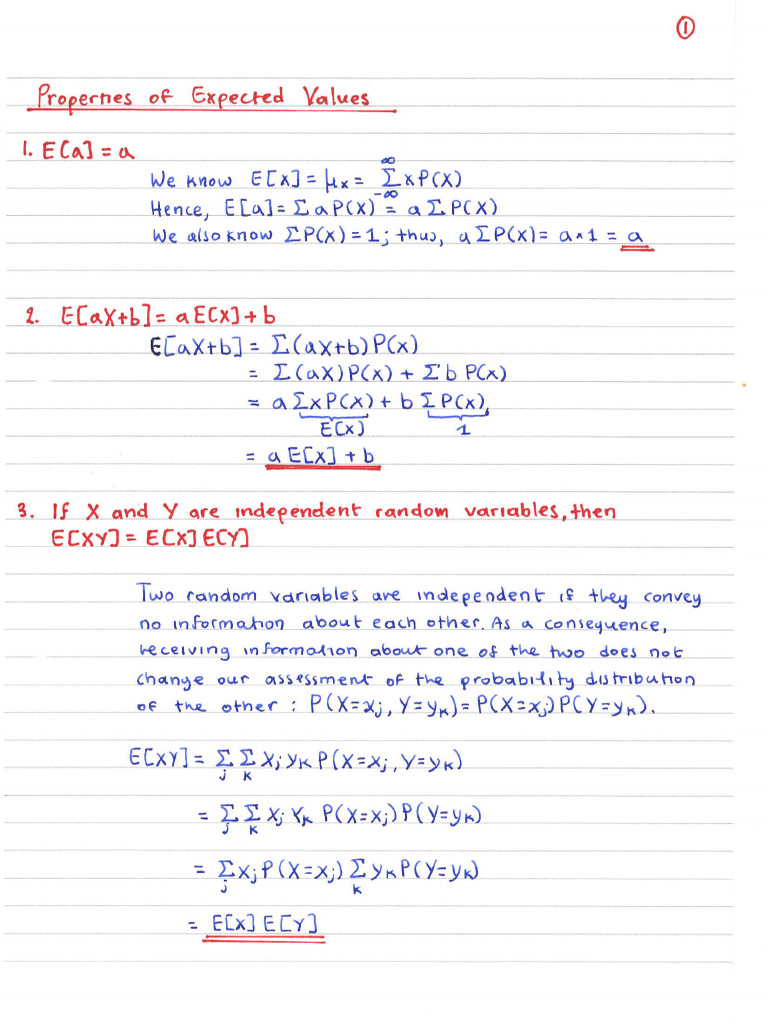 ①
Properties of Expected Values
1. E[a] = a
We know E[X] = μx = ∞ΣxP(X) -∞
Hence, E[a] = ΣaP(X) = aΣP(X)
We also know ΣP(X) = 1; thus, aΣP(X) = a×1 = a
2. E[aX+b] = aE[X] + b
E[aX+b] = Σ(aX+b)P(x)
= Σ(aX)P(x) + Σb P(x)
= aΣxP(X) + bΣP(x)
E[X] 1
= aE[X] + b
3. If X and Y are independent random variables, then
E[XY] = E[X]E[Y]
Two random variables are independent if they convey
no information about each other. As a consequence,
receiving information about one of the two does not
change our assessment of the probability distribution
of the other : P(X=xj, Y=yk) = P(X=xj)P(Y=yk).
E[XY] = Σ Σ xj yk P(X=xj, Y=yk)
j k
= Σ Σ xj yk P(X=xj)P(Y=yk)
j k
= Σ xj P(X=xj) Σ yk P(Y=yk)
j k
= E[X] E[Y]